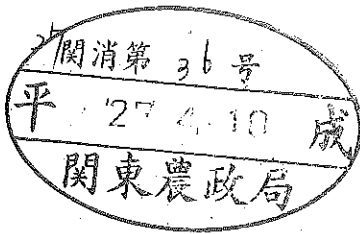 関消第 36 号
平 '27.4.10 成
関東農政局